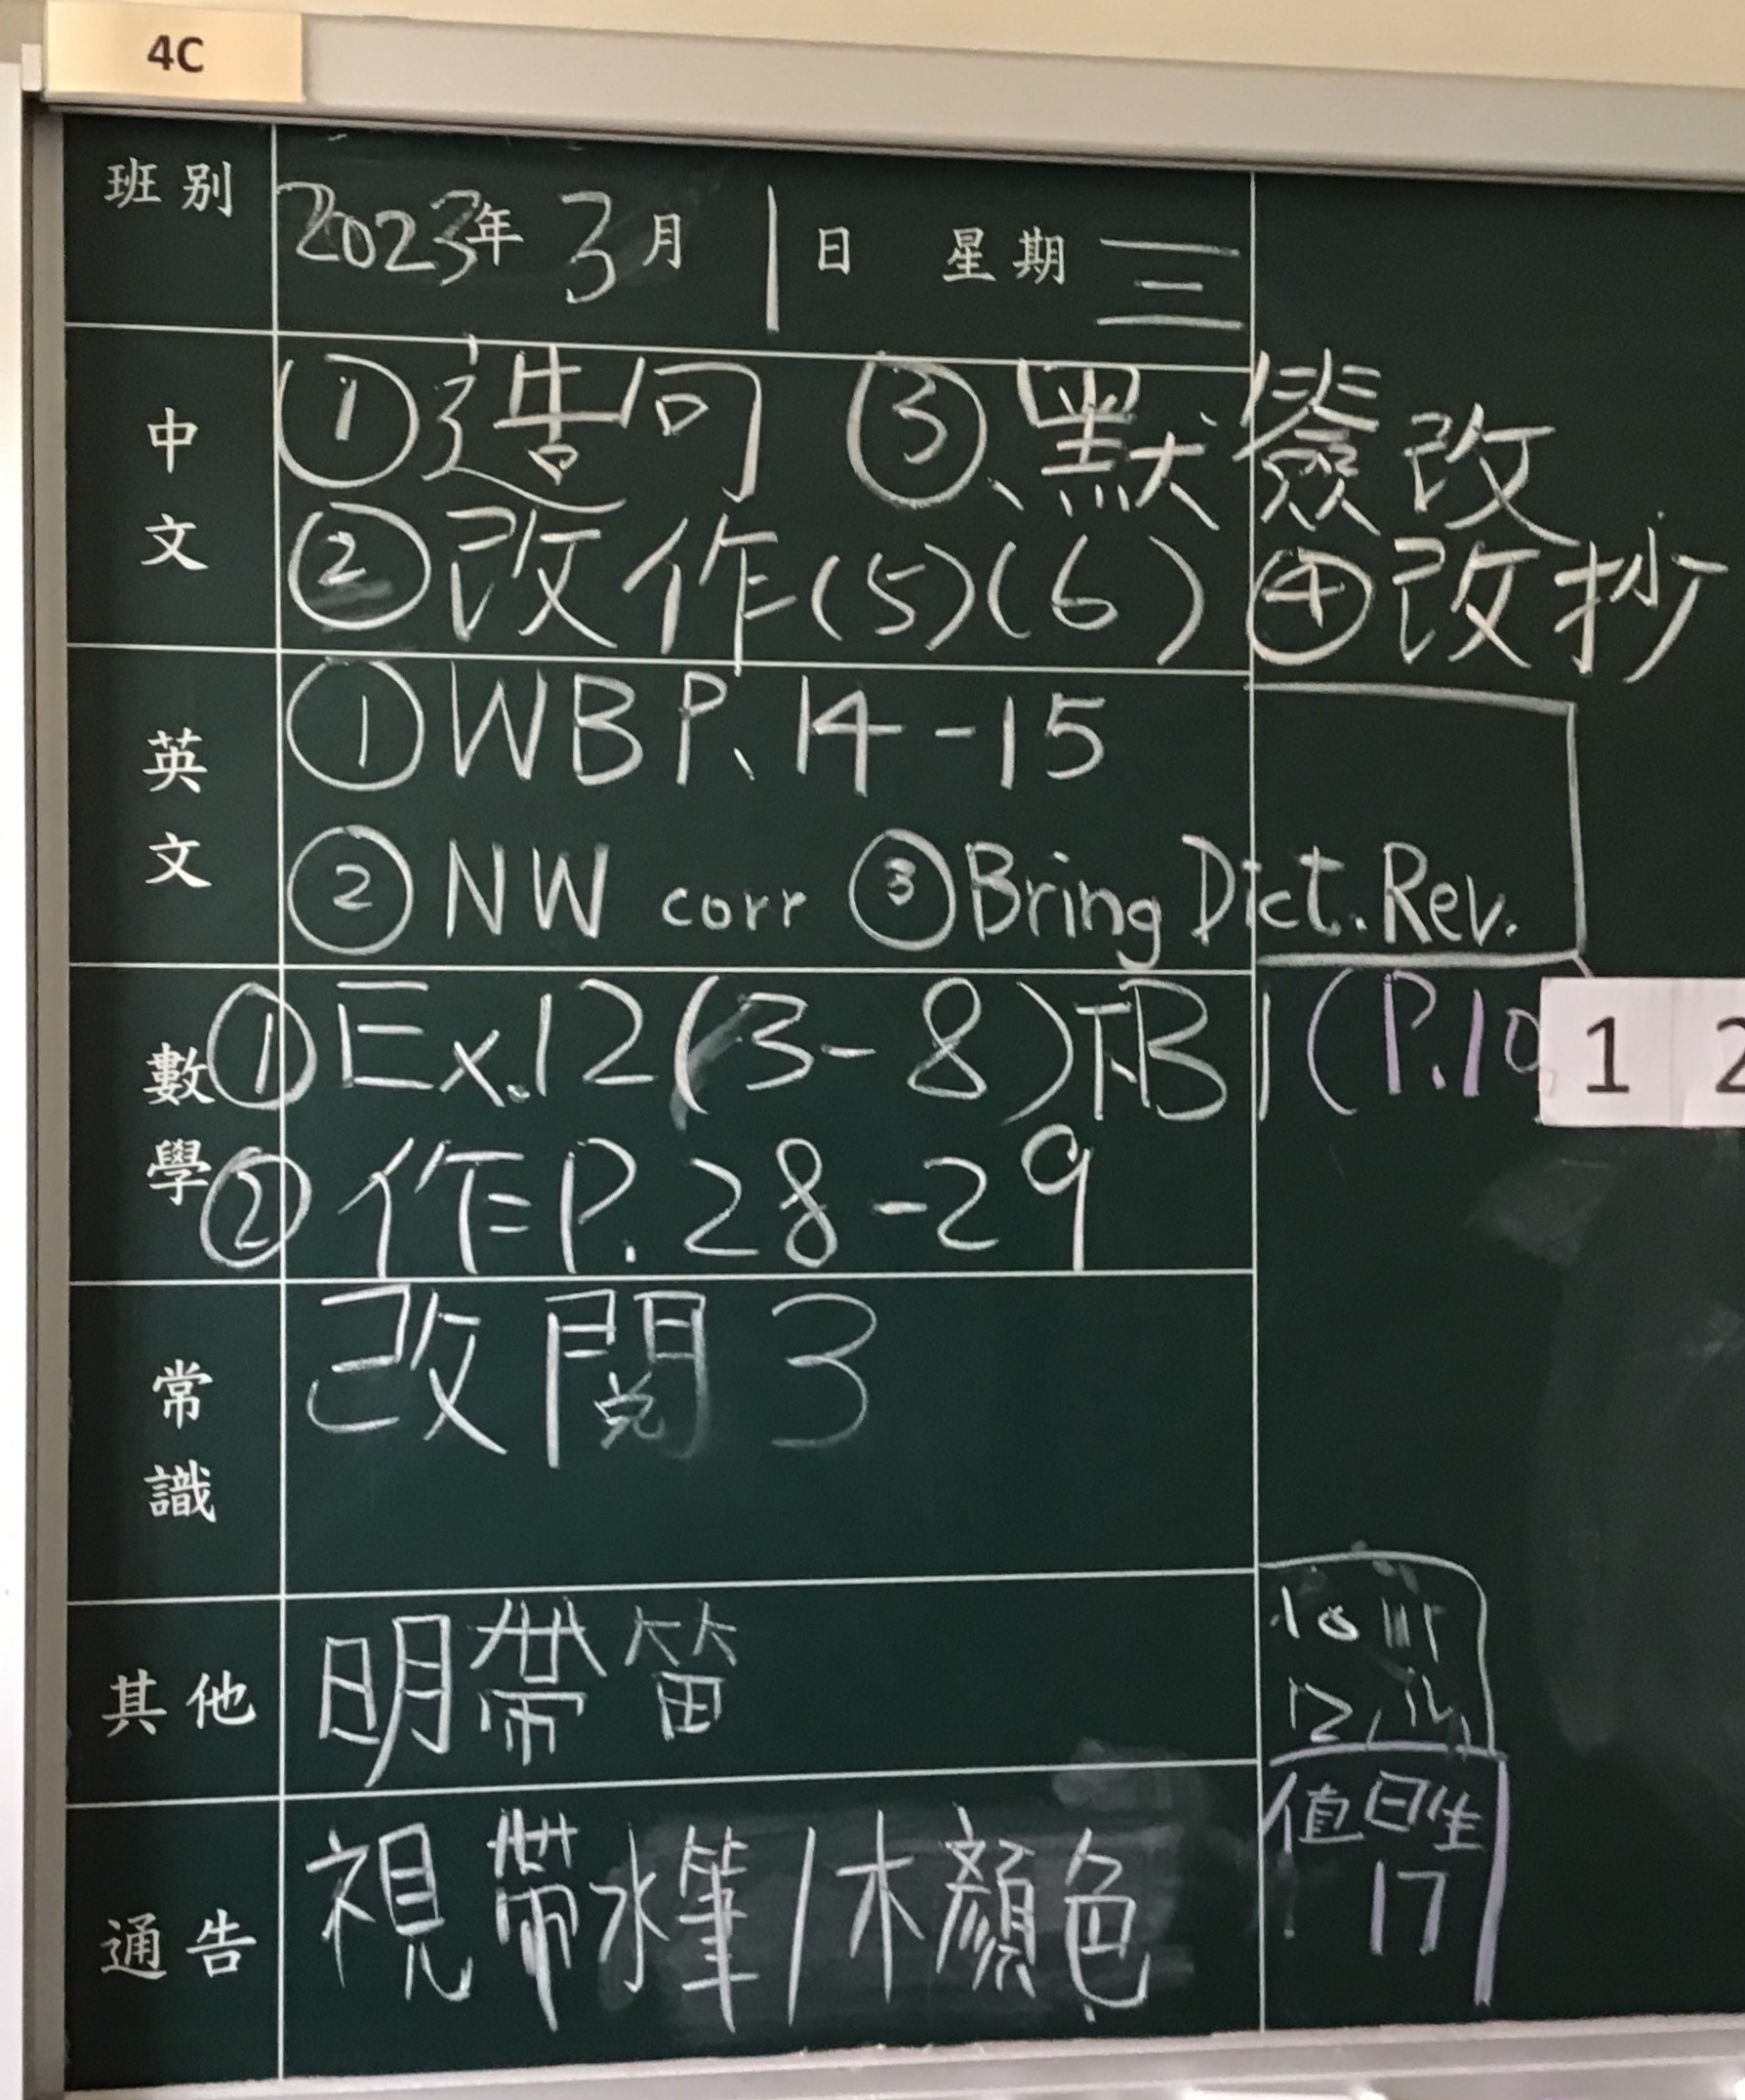 4C
班別 2023年 3月 1日 星期 三
中文 ①造句 ③、默簽改
②改作(5)(6) ④改抄
英文 ①WB P. 14-15
②NW corr ③Bring Dict. Rev.
數學 ①Ex.12(3-8)T.B 1 (P.10
1 2
②作P.28-29
常識 改閱3
其他 明帶笛
12,
通告 視帶水筆/木顏色
值日生
17